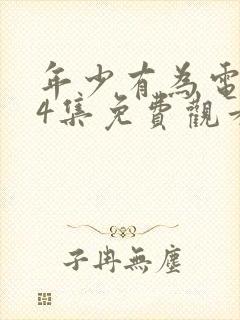 年少有為電
4集免費觀看
子冉無塵